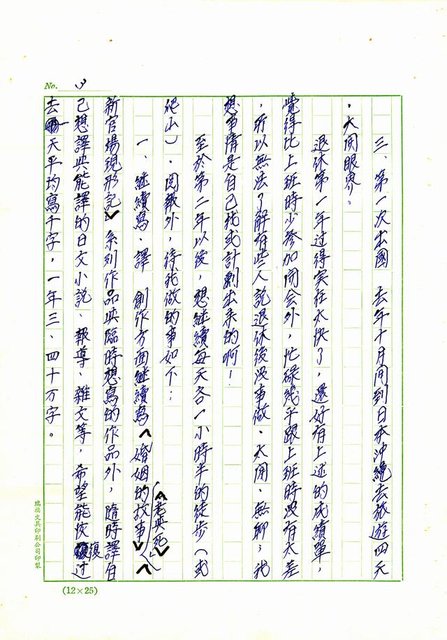 No. 3
三、第一次出國 去年十月間到日本沖繩去旅遊四天
，大開眼界。
退休第一年過得實在太快了，還好有上述的成績單，
覺得比上班時少參加開會外，忙碌幾乎跟上班時沒有太差
，所以無法了解有些人說退休後沒事做、太閒、無聊，我
想事情是自己找或計劃出來的啊！
至於第二年以後，想繼續每天各一小時半的徒步（或
爬山）、閱報外，待我做的事如下：
一、繼續寫、譯 創作方面繼續寫〈婚姻的故事〉〈
〈老與死〉
新官場現形記〉系列作品與臨時想寫的作品外，隨時譯自
己想譯與能譯的日文小說、報導、雜文等，希望能恢復過
去一天平均寫千字，一年三、四十萬字。
(12×25)